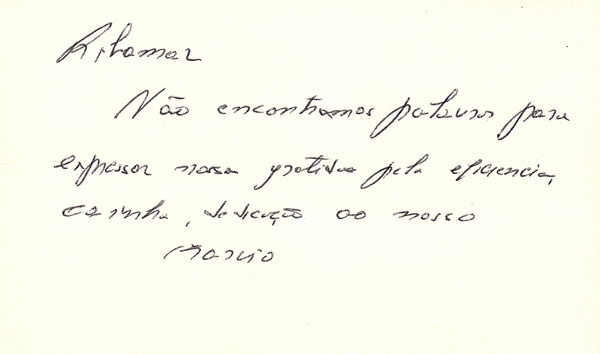 Ribamar
Não encontramos palavras para
expressar nossa gratidão pela eficiencia,
carinho, dedicação ao nosso
Marcio